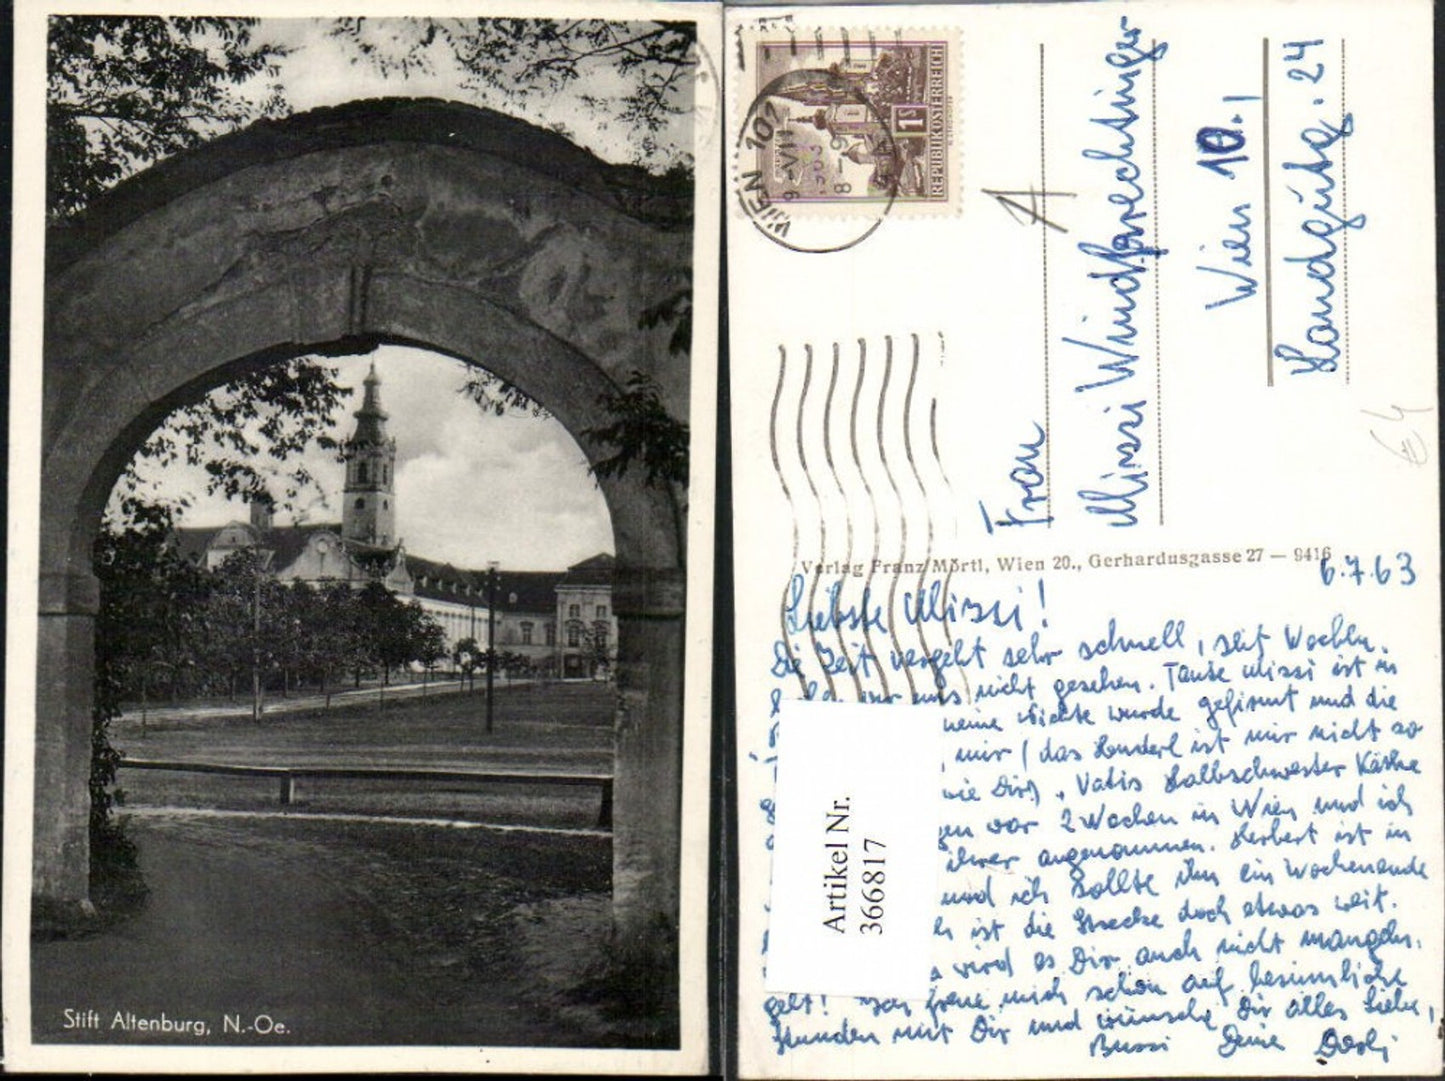 Stift Altenburg, N.-Oe.
1 S
REPUBLIK ÖSTERREICH
WIEN 101
9-VII
1963
8-9
Frau
Missi Windprechtinger
Wien 10.1
Landgutg. 24
Verlag Franz Mörtl, Wien 20., Gerhardusgasse 27 — 9416
6.7.63
Liebste Missi!
Die Zeit vergeht sehr schnell, seit Wochen
wir uns nicht gesehen. Tante Missi ist in
meine Nichte wurde gefirmt und die
mir (das Hunderl ist mir nicht so
wie Dir), Vatis Halbschwester Käthe
war 2 Wochen in Wien und ich
ihrer angenommen. Herbert ist in
und ich sollte ihn ein Wochenende
ist die Strecke doch etwas weit.
wird es Dir auch nicht mangeln,
gelt! Ich freue mich schon auf besinnliche
Stunden mit Dir und wünsche Dir alles Liebe,
Bussi Deine
Artikel Nr.
366817
€4